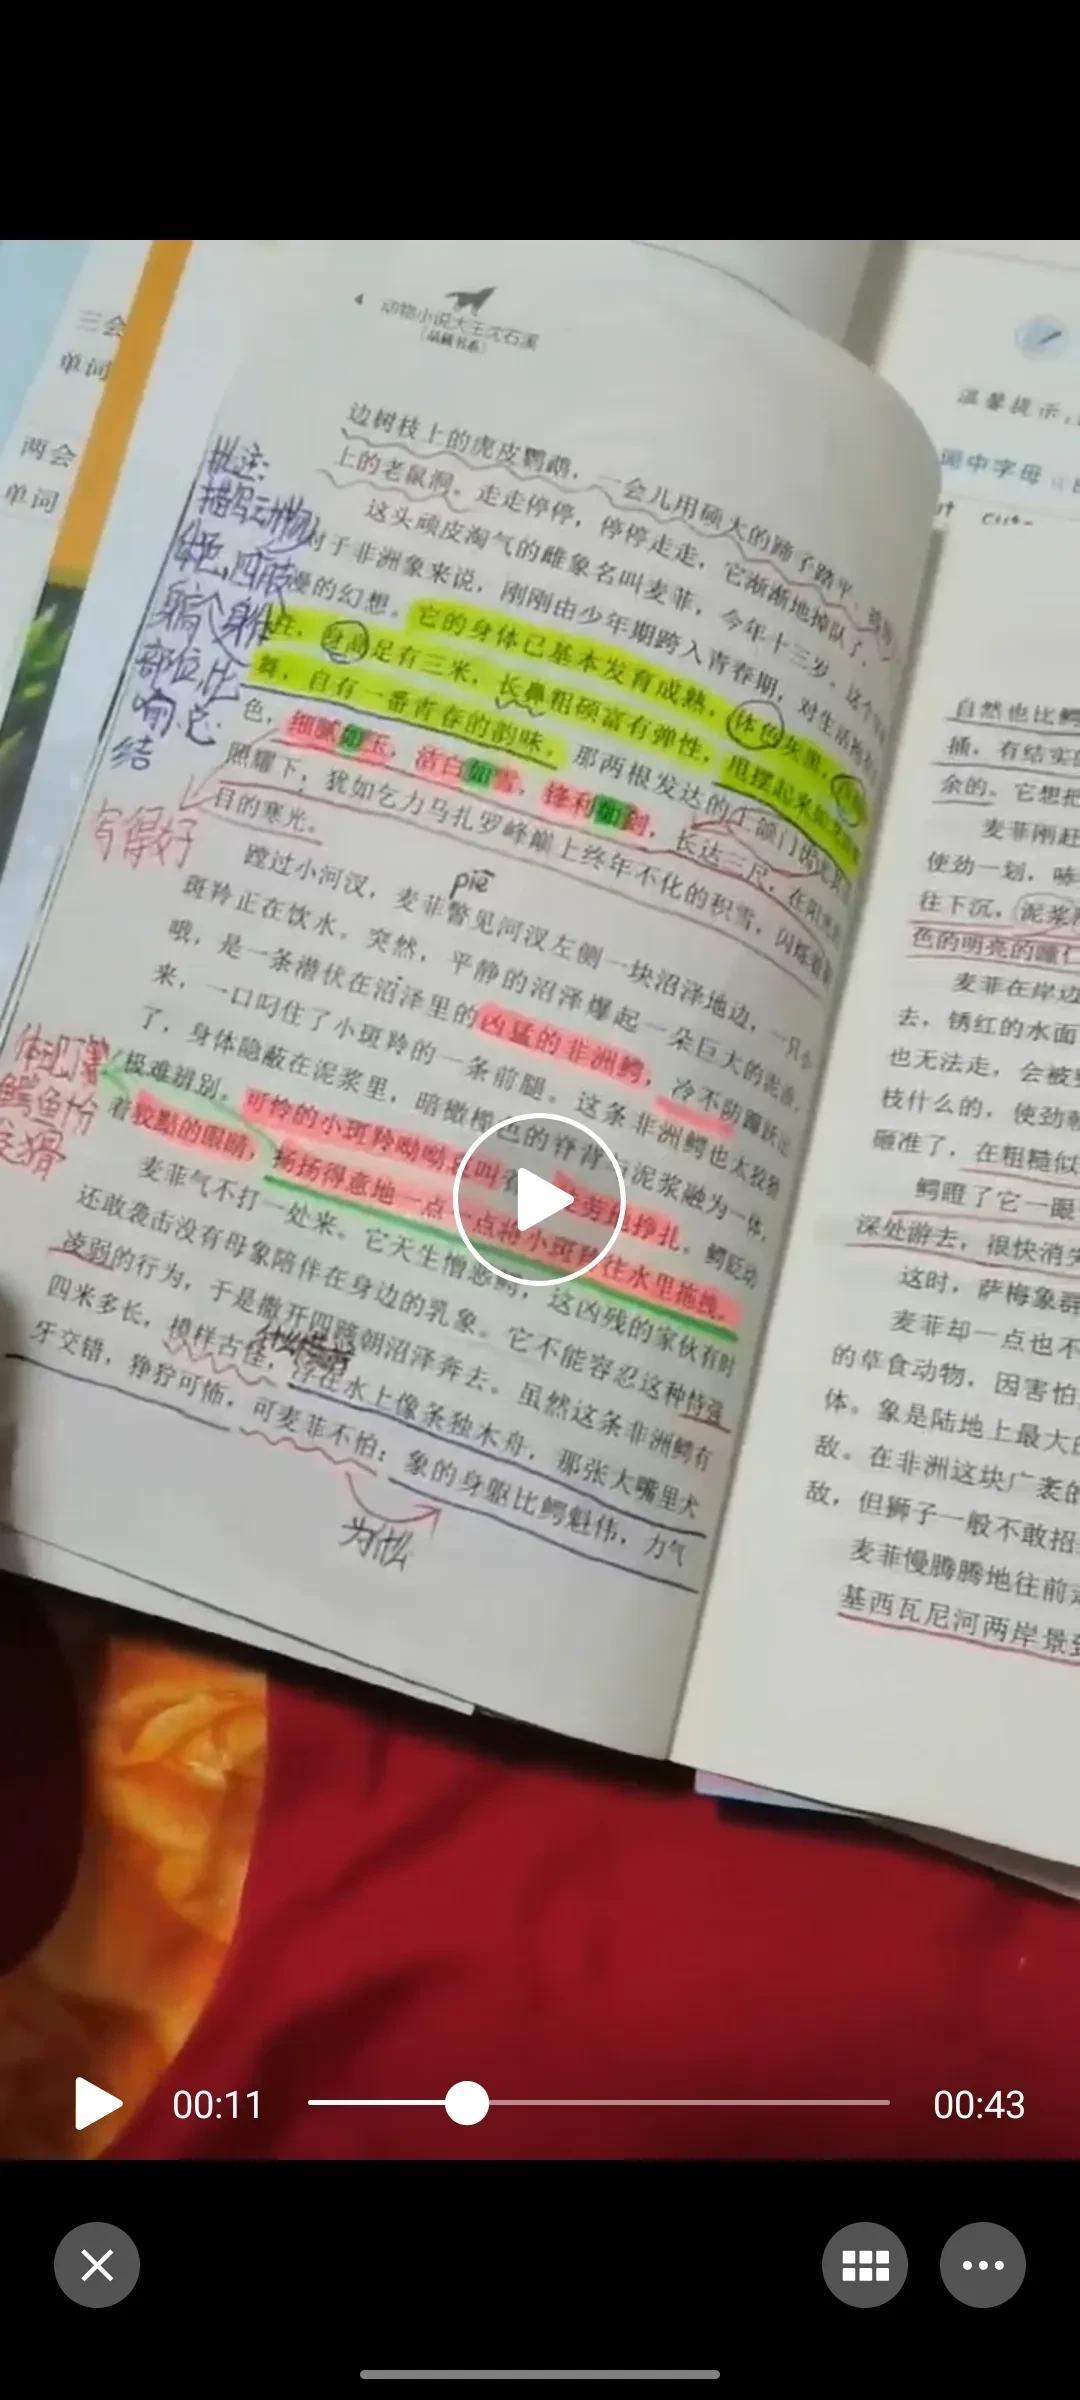 三会
单词
两会
单词
4 动物小说大王沈石溪
(品藏书系)
边树枝上的虎皮鹦鹉,一会儿用硕大的蹄子踏平
上的老鼠洞。走走停停,停停走走,它渐渐地掉队了。
这头顽皮淘气的雌象名叫麦菲,今年十三岁。这个
对于非洲象来说,刚刚由少年期跨入青春期,对生活
漫的幻想。它的身体已基本发育成熟,体色灰黑,
身高足有三米,长鼻粗硕富有弹性,甩摆起来
舞,自有一番青春的韵味,那两根发达的上颌门齿
色,细腻如玉,洁白如雪,锋利如剑,长达三尺,在阳
照耀下,犹如乞力马扎罗峰巅上终年不化的积雪,闪烁着
目的寒光。
蹚过小河汊,麦菲瞥见河汊左侧一块沼泽地边,一只小
斑羚正在饮水。突然,平静的沼泽爆起一朵巨大的泥
哦,是一条潜伏在沼泽里的凶猛的非洲鳄,冷不防蹿跃
来,一口叼住了小斑羚的一条前腿。这条非洲鳄也太狡猾
了,身体隐蔽在泥浆里,暗橄榄色的脊背与泥浆融为一体,
极难辨别。可怜的小斑羚呦呦哀叫着 劳地挣扎。鳄眨动
着狡黠的眼睛,扬扬得意地一点一点将小斑羚往水里拖拽。
麦菲气不打一处来。它天生憎恶鳄,这凶残的家伙有时
还敢袭击没有母象陪伴在身边的乳象。它不能容忍这种恃强
凌弱的行为,于是撒开四蹄朝沼泽奔去。虽然这条非洲鳄有
四米多长,模样古怪,浮在水上像条独木舟,那张大嘴里犬
牙交错,狰狞可怖,可麦菲不怕;象的身躯比鳄魁伟,力气
批注:
描写动物
体色,四肢
身高,身体
部位,比
喻,总
结
写得好
piē
体现了
鳄鱼
狡猾
为什么
温馨提示
词中字母
自然也比鳄
捅,有结实
余的。它想把
麦菲刚赶
使劲一划,哧
往下沉,泥浆
色的明亮的瞳仁
麦菲在岸边
去,锈红的水面
也无法走,会被
枝什么的,使劲朝
砸准了,在粗糙似
鳄瞪了它一眼
深处游去,很快消失
这时,萨梅象群
麦菲却一点也不
的草食动物,因害怕
体。象是陆地上最大的
敌。在非洲这块广袤的
敌,但狮子一般不敢招
麦菲慢腾腾地往前走
基西瓦尼河两岸景
00:11
00:43